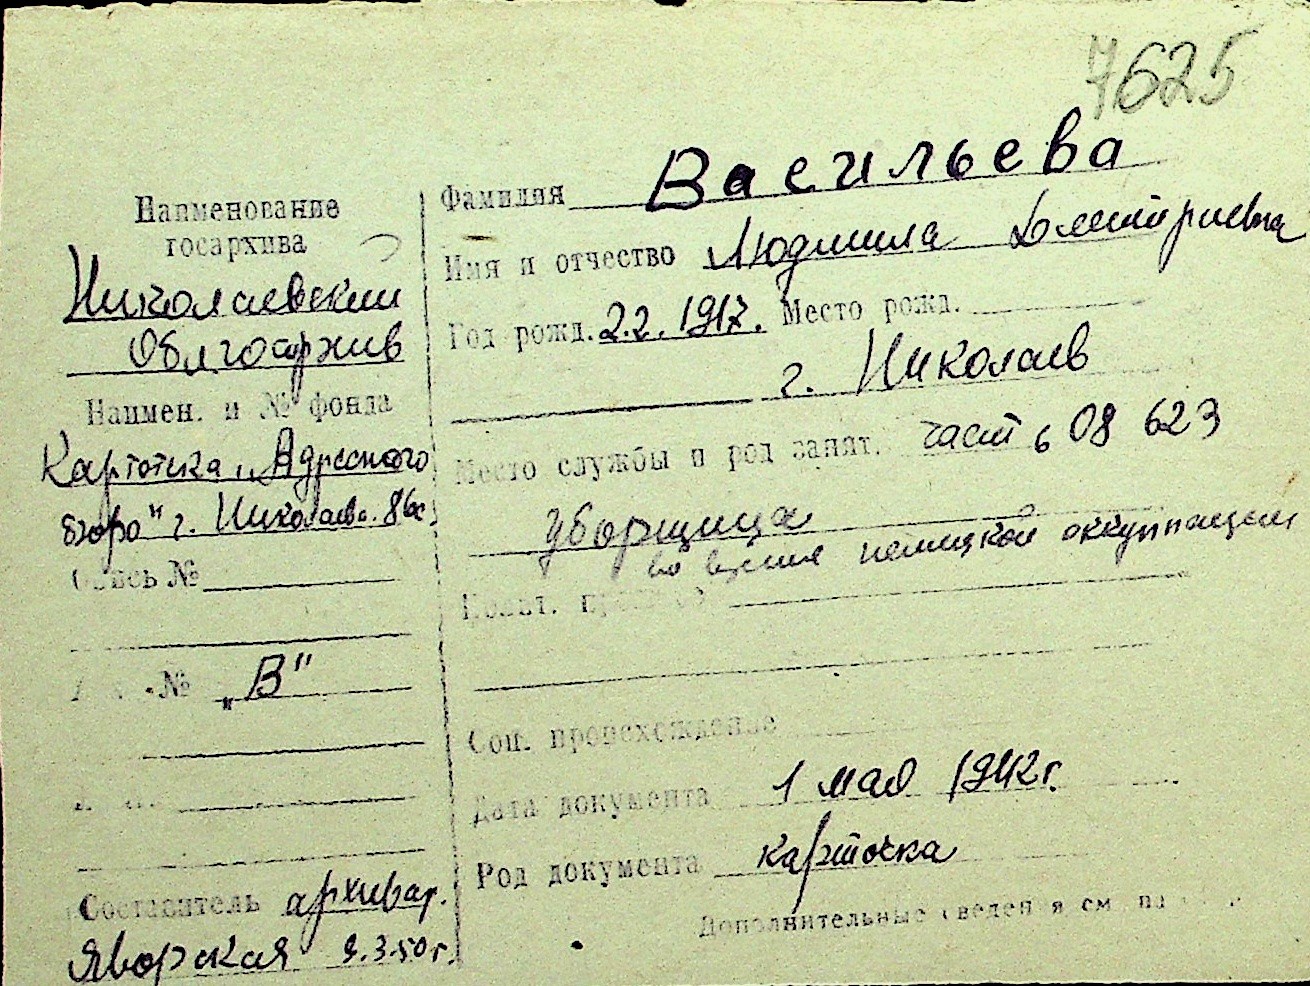 7625
Наименование
госархива
Николаевский
Облгосархив
Наимен. и № фонда
Картотека "Адресного
бюро" г. Николаева.
Опись №
№ „В"
Составитель архивар.
Яворская 9.3.50 г.
Фамилия Васильева
Имя и отчество Людмила Дмитриевна
Год рожд. 2.2.1917. Место рожд.
г. Николаев
Место службы и род занят. часть 08 623
уборщица
во время немецкой оккупации
Соц. происхождение
Дата документа 1 мая 1942 г.
Род документа карточка
Дополнительные сведения см. на